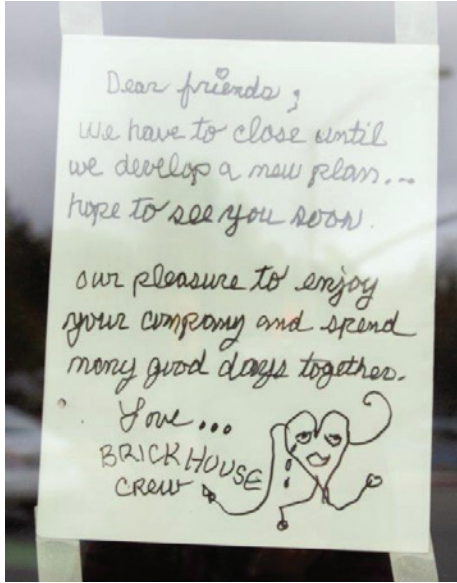 Dear friends;
We have to close until
we develop a new plan...
hope to see you soon.
our pleasure to enjoy
your company and spend
many good days together.
Love...
BRICKHOUSE
CREW